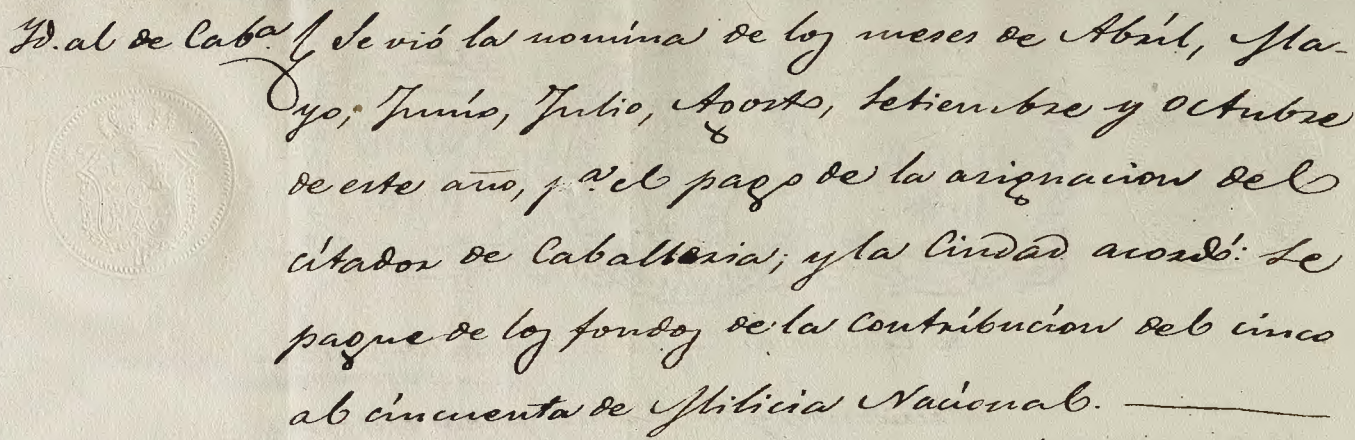 Yd. al de Cab.ª Se vió la nomina de los meses de Abril, Ma-
yo, Junio, Julio, Agosto, Setiembre y Octubre
de este año, p.ª el pago de la asignacion del
citador de Caballeria; y la Ciudad acordó: Se
pague de los fondos de la Contribucion del cinco
al cincuenta de Milicia Nacional.